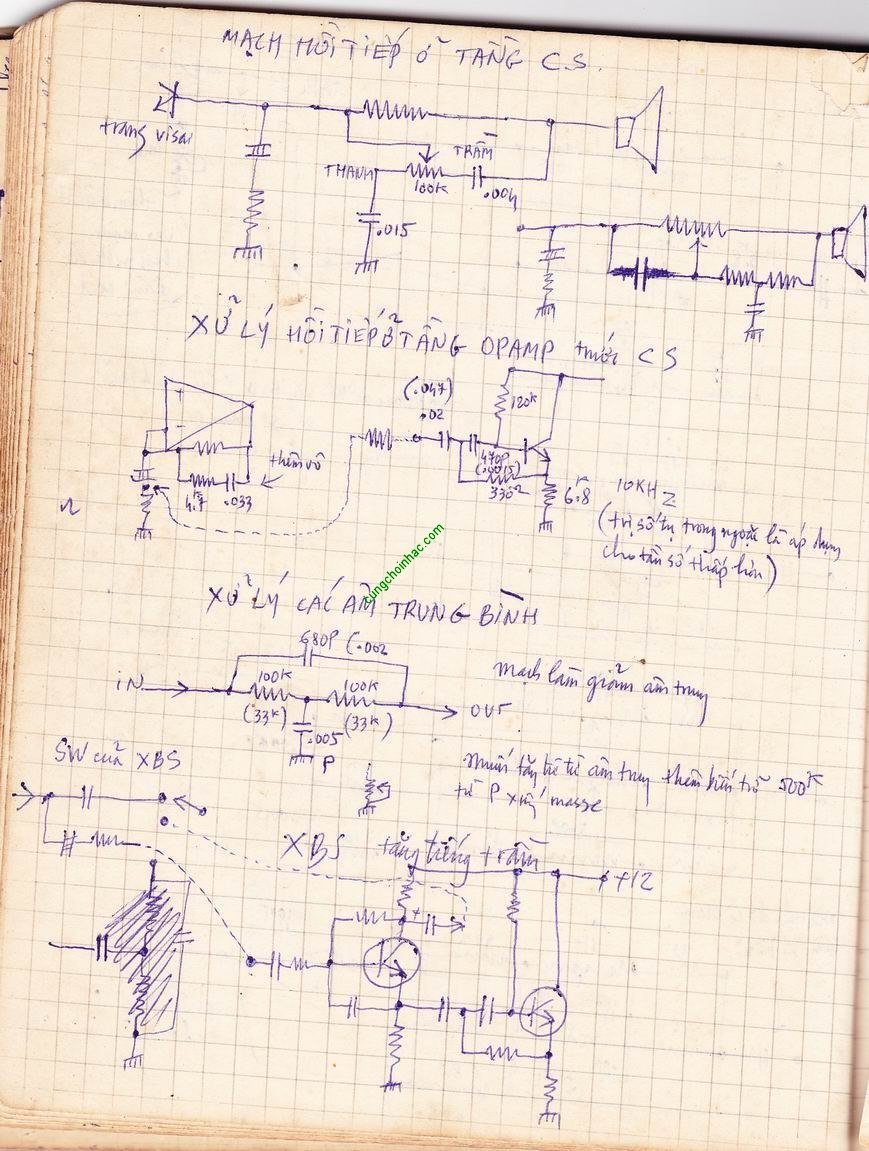 MẠCH HỒI TIẾP Ở TẦNG C.S.
trang visai
TRẦM
THANH
100K
.004
.015
XỬ LÝ HỒI TIẾP Ở TẦNG OPAMP trước CS
(.047)
.02
120K
+
-
thêm vô
470P
(.0015)
330Ω
4.7K
.033
6.8K
10KHZ
(trị số tụ trong ngoặc là áp dụng
cho tần số thấp hơn)
cungchoinhac.com
XỬ LÝ CÁC ÂM TRUNG BÌNH
680P (.002
mạch làm giảm âm trung
iN
100K
100K
OUT
(33K)
(33K)
.005
P
SW của XBS
thêm biến trở 500K
từ P xuống masse
XBS tăng tiếng trầm
+12
+